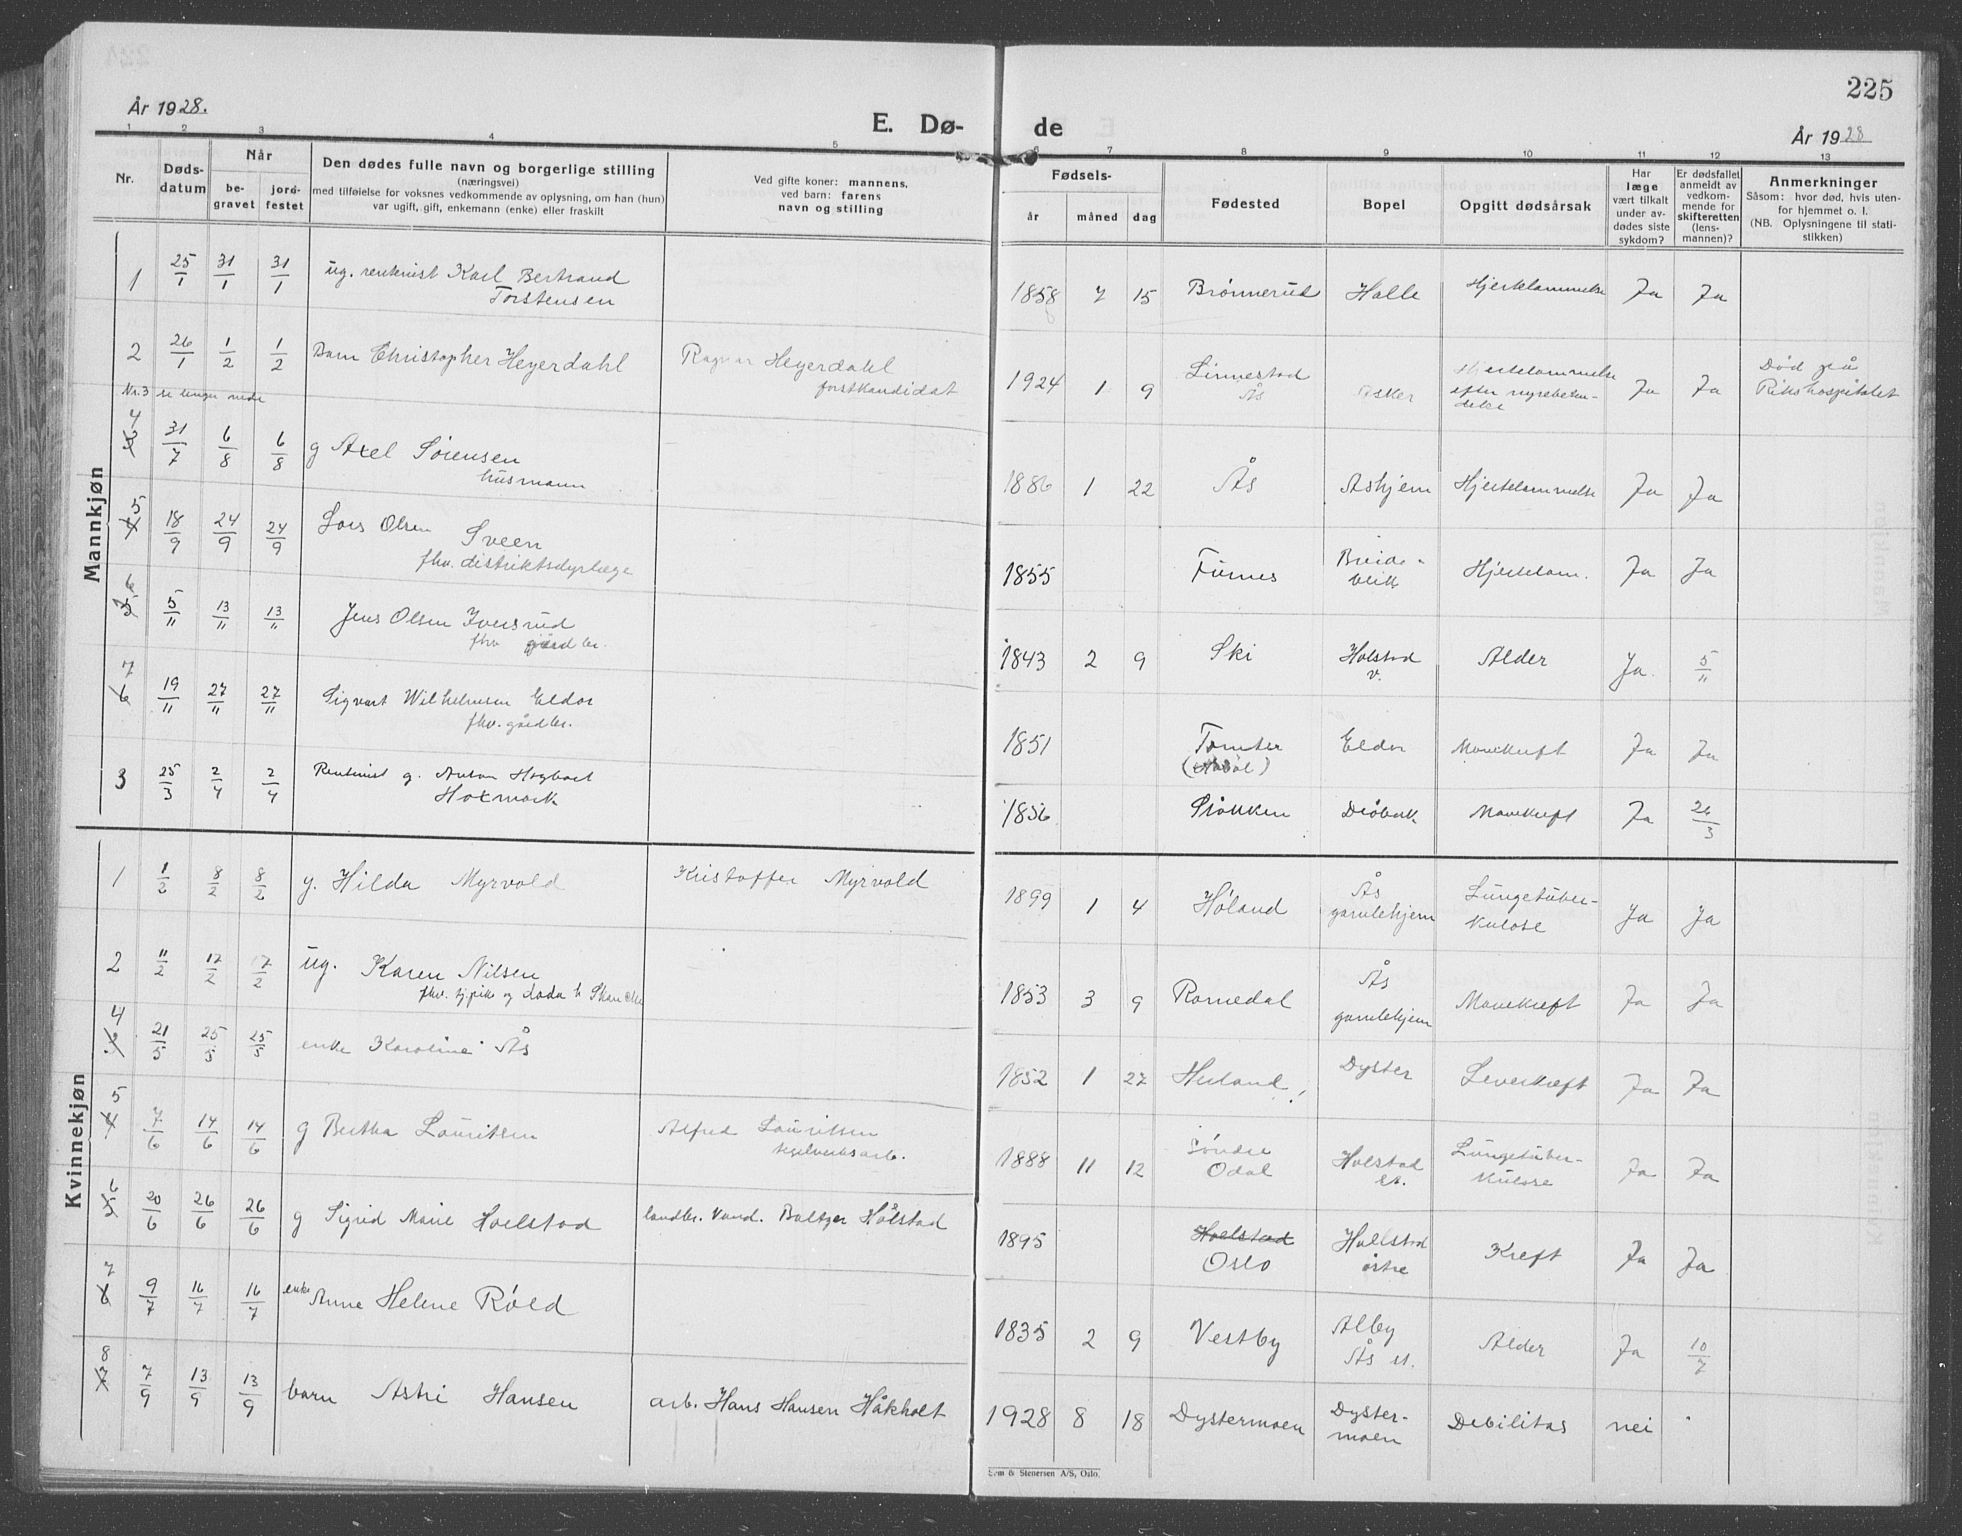 225
År 1928.
E. Dø-
de
År 1928
1 2 3 4 5 6 7 8 9 10 11 12 13
Nr.
Døds-
datum
Når
be-
gravet
jord-
festet
Den dødes fulle navn og borgerlige stilling
(næringsvei)
med tilføielse for voksnes vedkommende av oplysning, om han (hun)
var ugift, gift, enkemann (enke) eller fraskilt
Ved gifte koner: mannens,
ved barn: farens
navn og stilling
Fødsels-
år
måned
dag
Fødested
Bopel
Opgitt dødsårsak
Har
læge
vært tilkalt
under av-
dødes siste
sykdom?
Er dødsfallet
anmeldt av
vedkom-
mende for
skifteretten
(lens-
mannen)?
Anmerkninger
Såsom: hvor død, hvis uten-
for hjemmet o. l.
(NB. Oplysningene til stati-
stikken)
Mannkjøn
1 25/1 31/1 31/1 ug. rentenist Karl Bertrand
Torstensen
1858 7 15 Brønnerud Holle Hjerteklammelse Ja Ja
2 26/1 1/2 1/2 Barn Christopher Heyerdahl Ragnar Heyerdahl
forstkandidat
1924 1 9 Linnestad
Ås
Asker Hjertelammelse
efter nyrebeten-
delse
Ja Ja Død på
Rikshospitalet
Nr. 3 se lenger nede
4 31/7 6/8 6/8 g Axel Sörensen
husmann
1886 1 22 Ås Askjem Hjertelammelse Ja Ja
5 18/9 24/9 24/9 Lars Olsen Sveen
fhv. distriktsdyrlæge
1855 Furnes Breide-
blik
Hjertelam. Ja Ja
6 5/11 13/11 13/11 Jens Olsen Iversrud
fhv gårdbr.
1843 2 9 Ski Holstad
v.
Alder Ja. 5/11
7 19/11 27/11 27/11 Sigvart Wilhelmsen Eldor
fhv. gårdbr.
1851 Tomter
(Hobøl)
Eldor Mavekreft Ja Ja
3 25/3 2/4 2/4 Rentenist g. Anton Hogbart
Hoxmark
1856 Drøbak Mavekreft Ja 26/3
Kvinnekjøn
1 1/2 8/2 8/2 g. Hilda Myrvold Kristoffer Myrvold
1899 1 4 Høland Ås
gamlehjem
Lungetuber-
kulose
Ja Ja
2 11/2 17/2 17/2 ug. Karen Nilsen
fhv. tj.pike og
1853 3 9 Romedal Ås
gamlehjem
Mavekreft Ja Ja
4 21/5 25/5 25/5 enke Karoline Ås
1852 1 27 Dyster Leverkreft Ja Ja
5 7/6 14/6 14/6 g Bertha Lauritsen Alfred Lauritsen
teglverksarb.
1888 11 12 Söndre
Odal
Holstad
st.
Lungetuber-
kulose
Ja Ja
6 20/6 26/6 26/6 g Sigrid Marie Holstad landbr. kand. Baltzer Hålstad
1895 Holstad
Oslo
Holstad
östre
Kreft Ja Ja
7 9/7 16/7 16/7 enke Anne Helene Röed
1835 2 9 Vestby Alby
Ås st.
Alder Ja 10/7
8 7/9 13/9 13/9 barn Astri Hansen arb. Hans Hansen Håkholt
1928 8 18 Dystermoen Dyster-
moen
Debilitas nei
Sem & Stenersen A/S, Oslo.